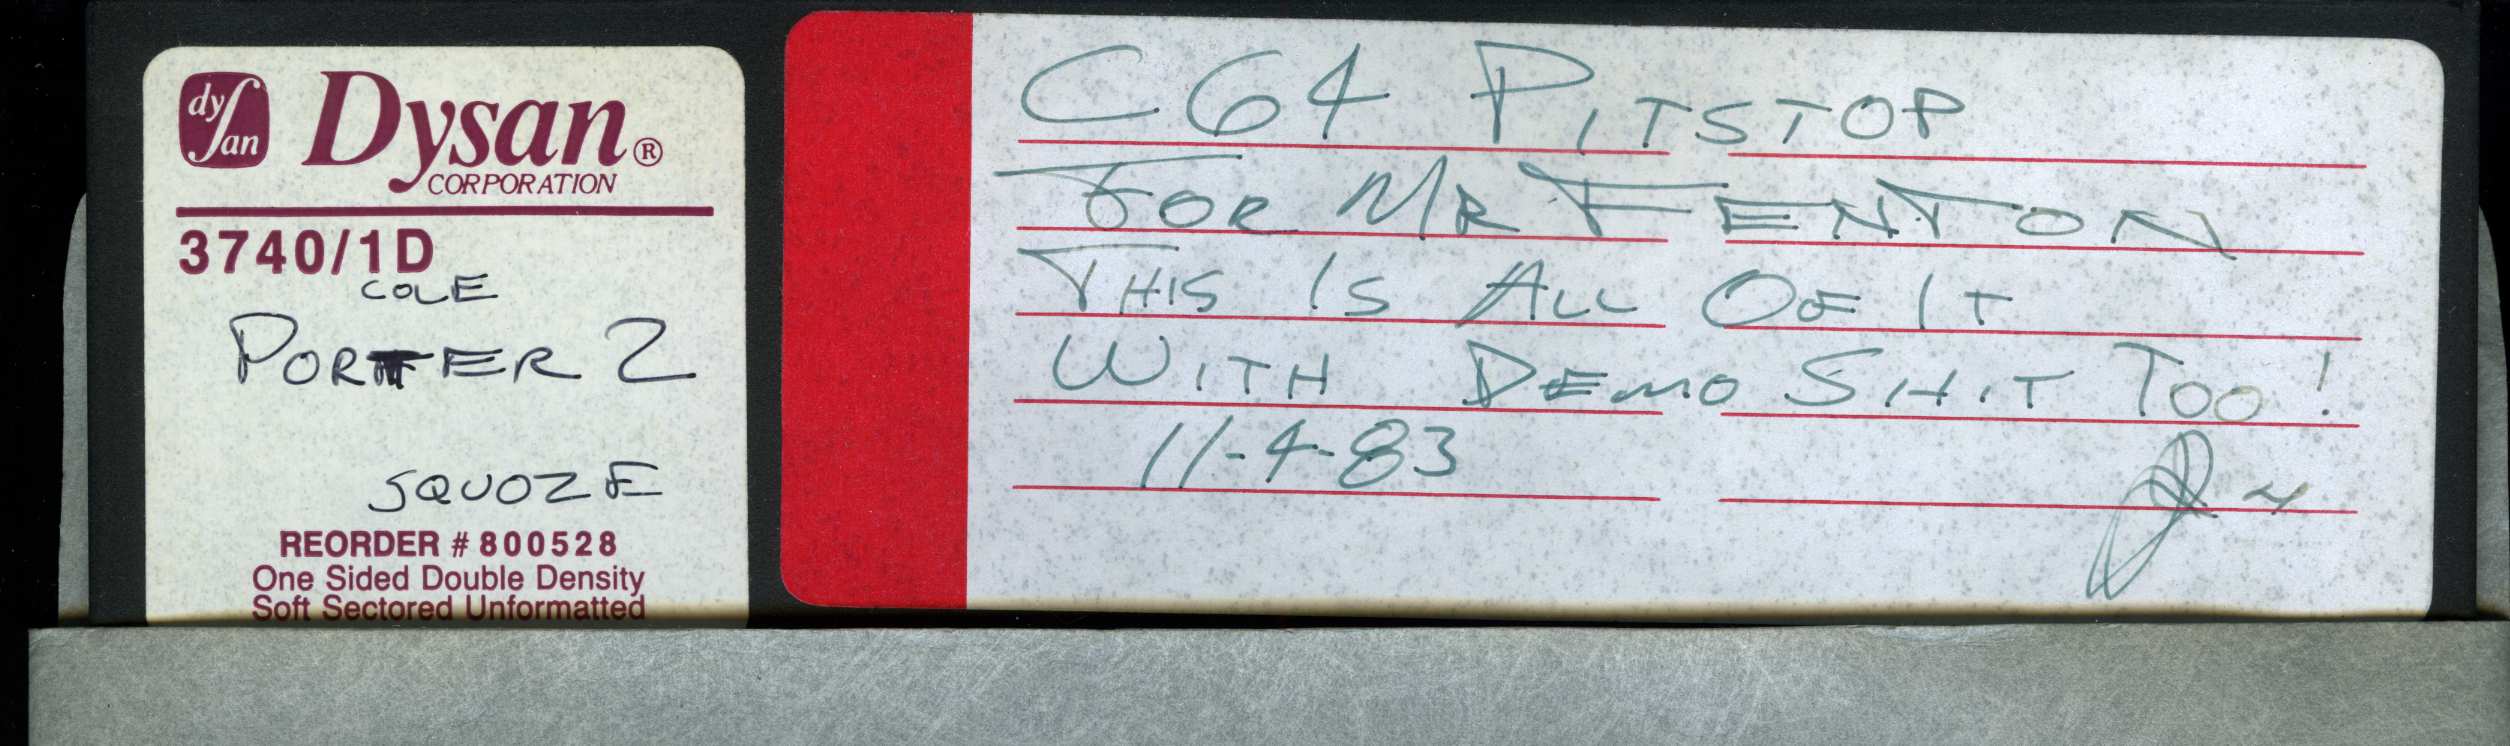 dysan
Dysan®
CORPORATION
3740/1D
COLE
PORTER 2
SQUOZE
REORDER # 800528
One Sided Double Density
Soft Sectored Unformatted
C64 PITSTOP
FOR MR FENTON
THIS IS ALL OF IT
WITH DEMO SHIT TOO!
11-4-83